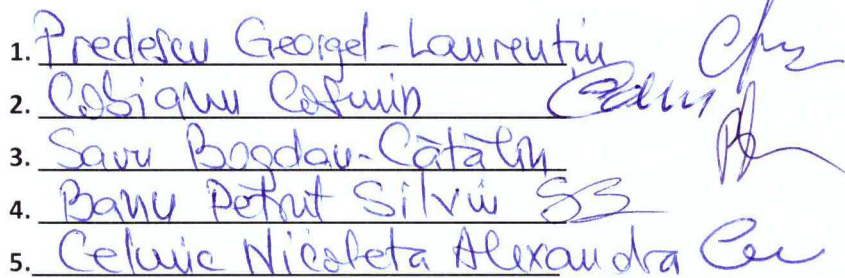 1. Predescu Georgel-Laurențiu
2. Cosmin
3. Savu Bogdan-Cătălin
4. Banu Petruț Silviu SB
5. Nicoleta Alexandra